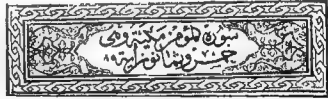 سورة المؤمن مكية وهى
خمس وثمانون اية